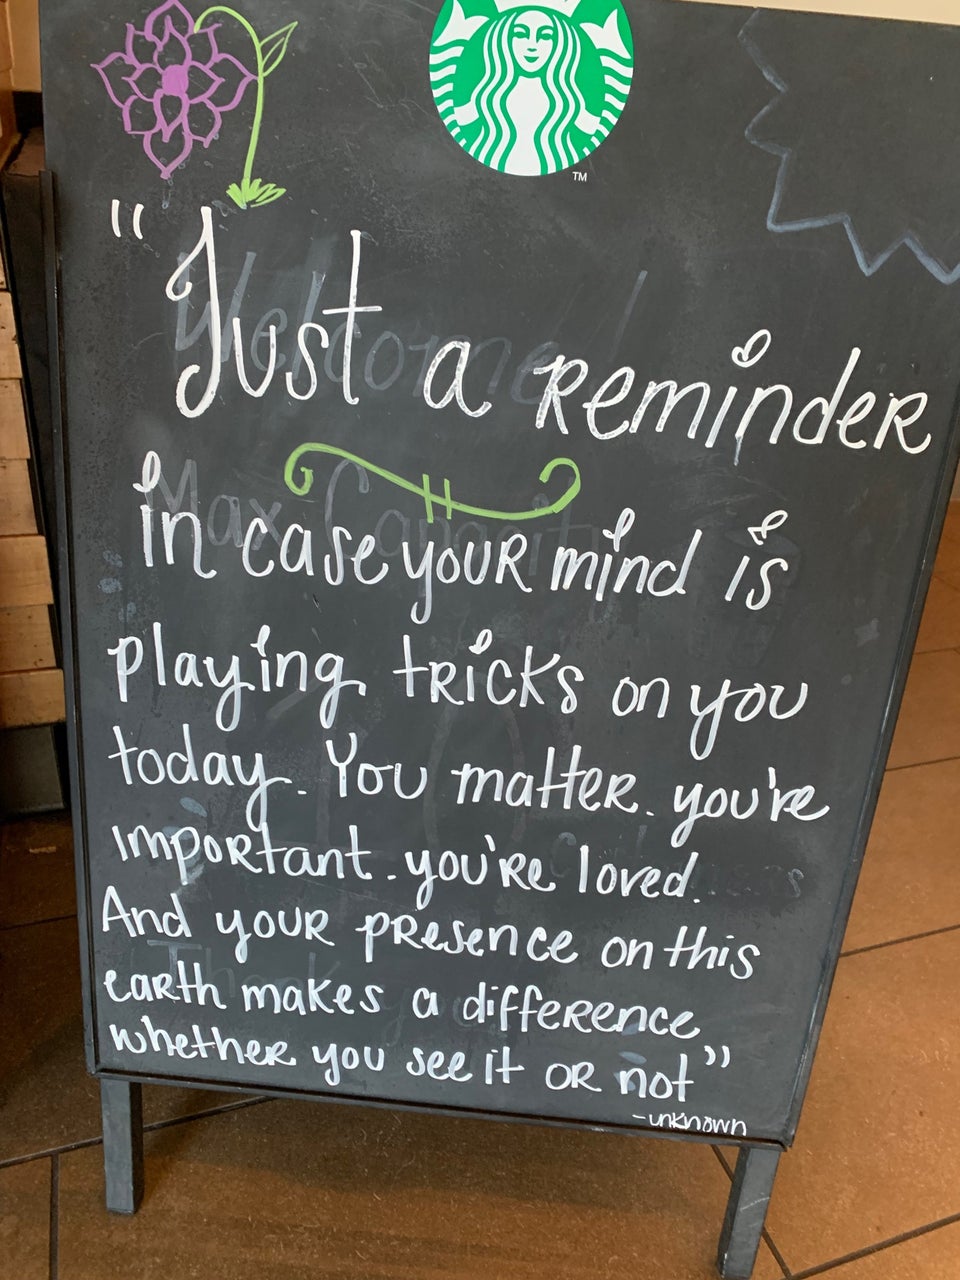 TM
"Just a Reminder
in case your mind is
playing tricks on you
today. You matter. you're
important. you're loved.
And your presence on this
earth makes a difference
whether you see it or not"
-unknown
Welcome!
Max Capacity
10
Thank you